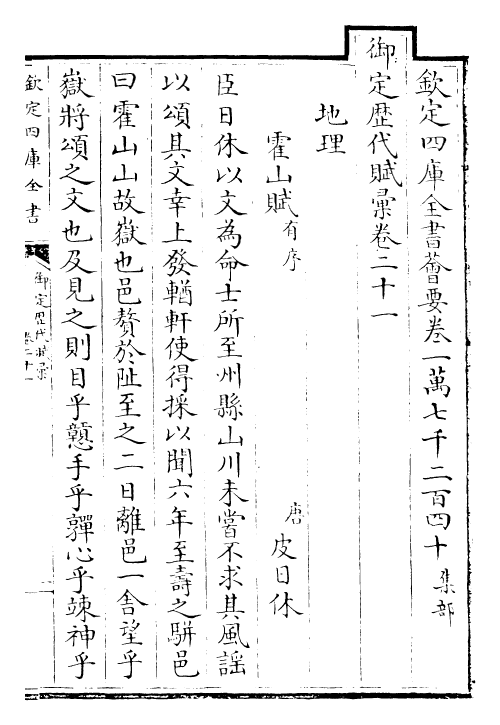 欽定四庫全書薈要卷一萬七千二百四十 集部
御定歷代賦彙卷二十一
地理
霍山賦 有序 唐 皮日休
臣日休以文為命士所至州縣山川未嘗不求其風謠
以頌其文幸上發輶軒使得採以聞六年至壽之駢邑
曰霍山山故嶽也邑贅於趾至之二日離邑一舍望乎
嶽將頌之文也及見之則目乎戇手乎嚲心乎竦神乎
欽定四庫全書
御定歷代賦彙
卷二十一
一